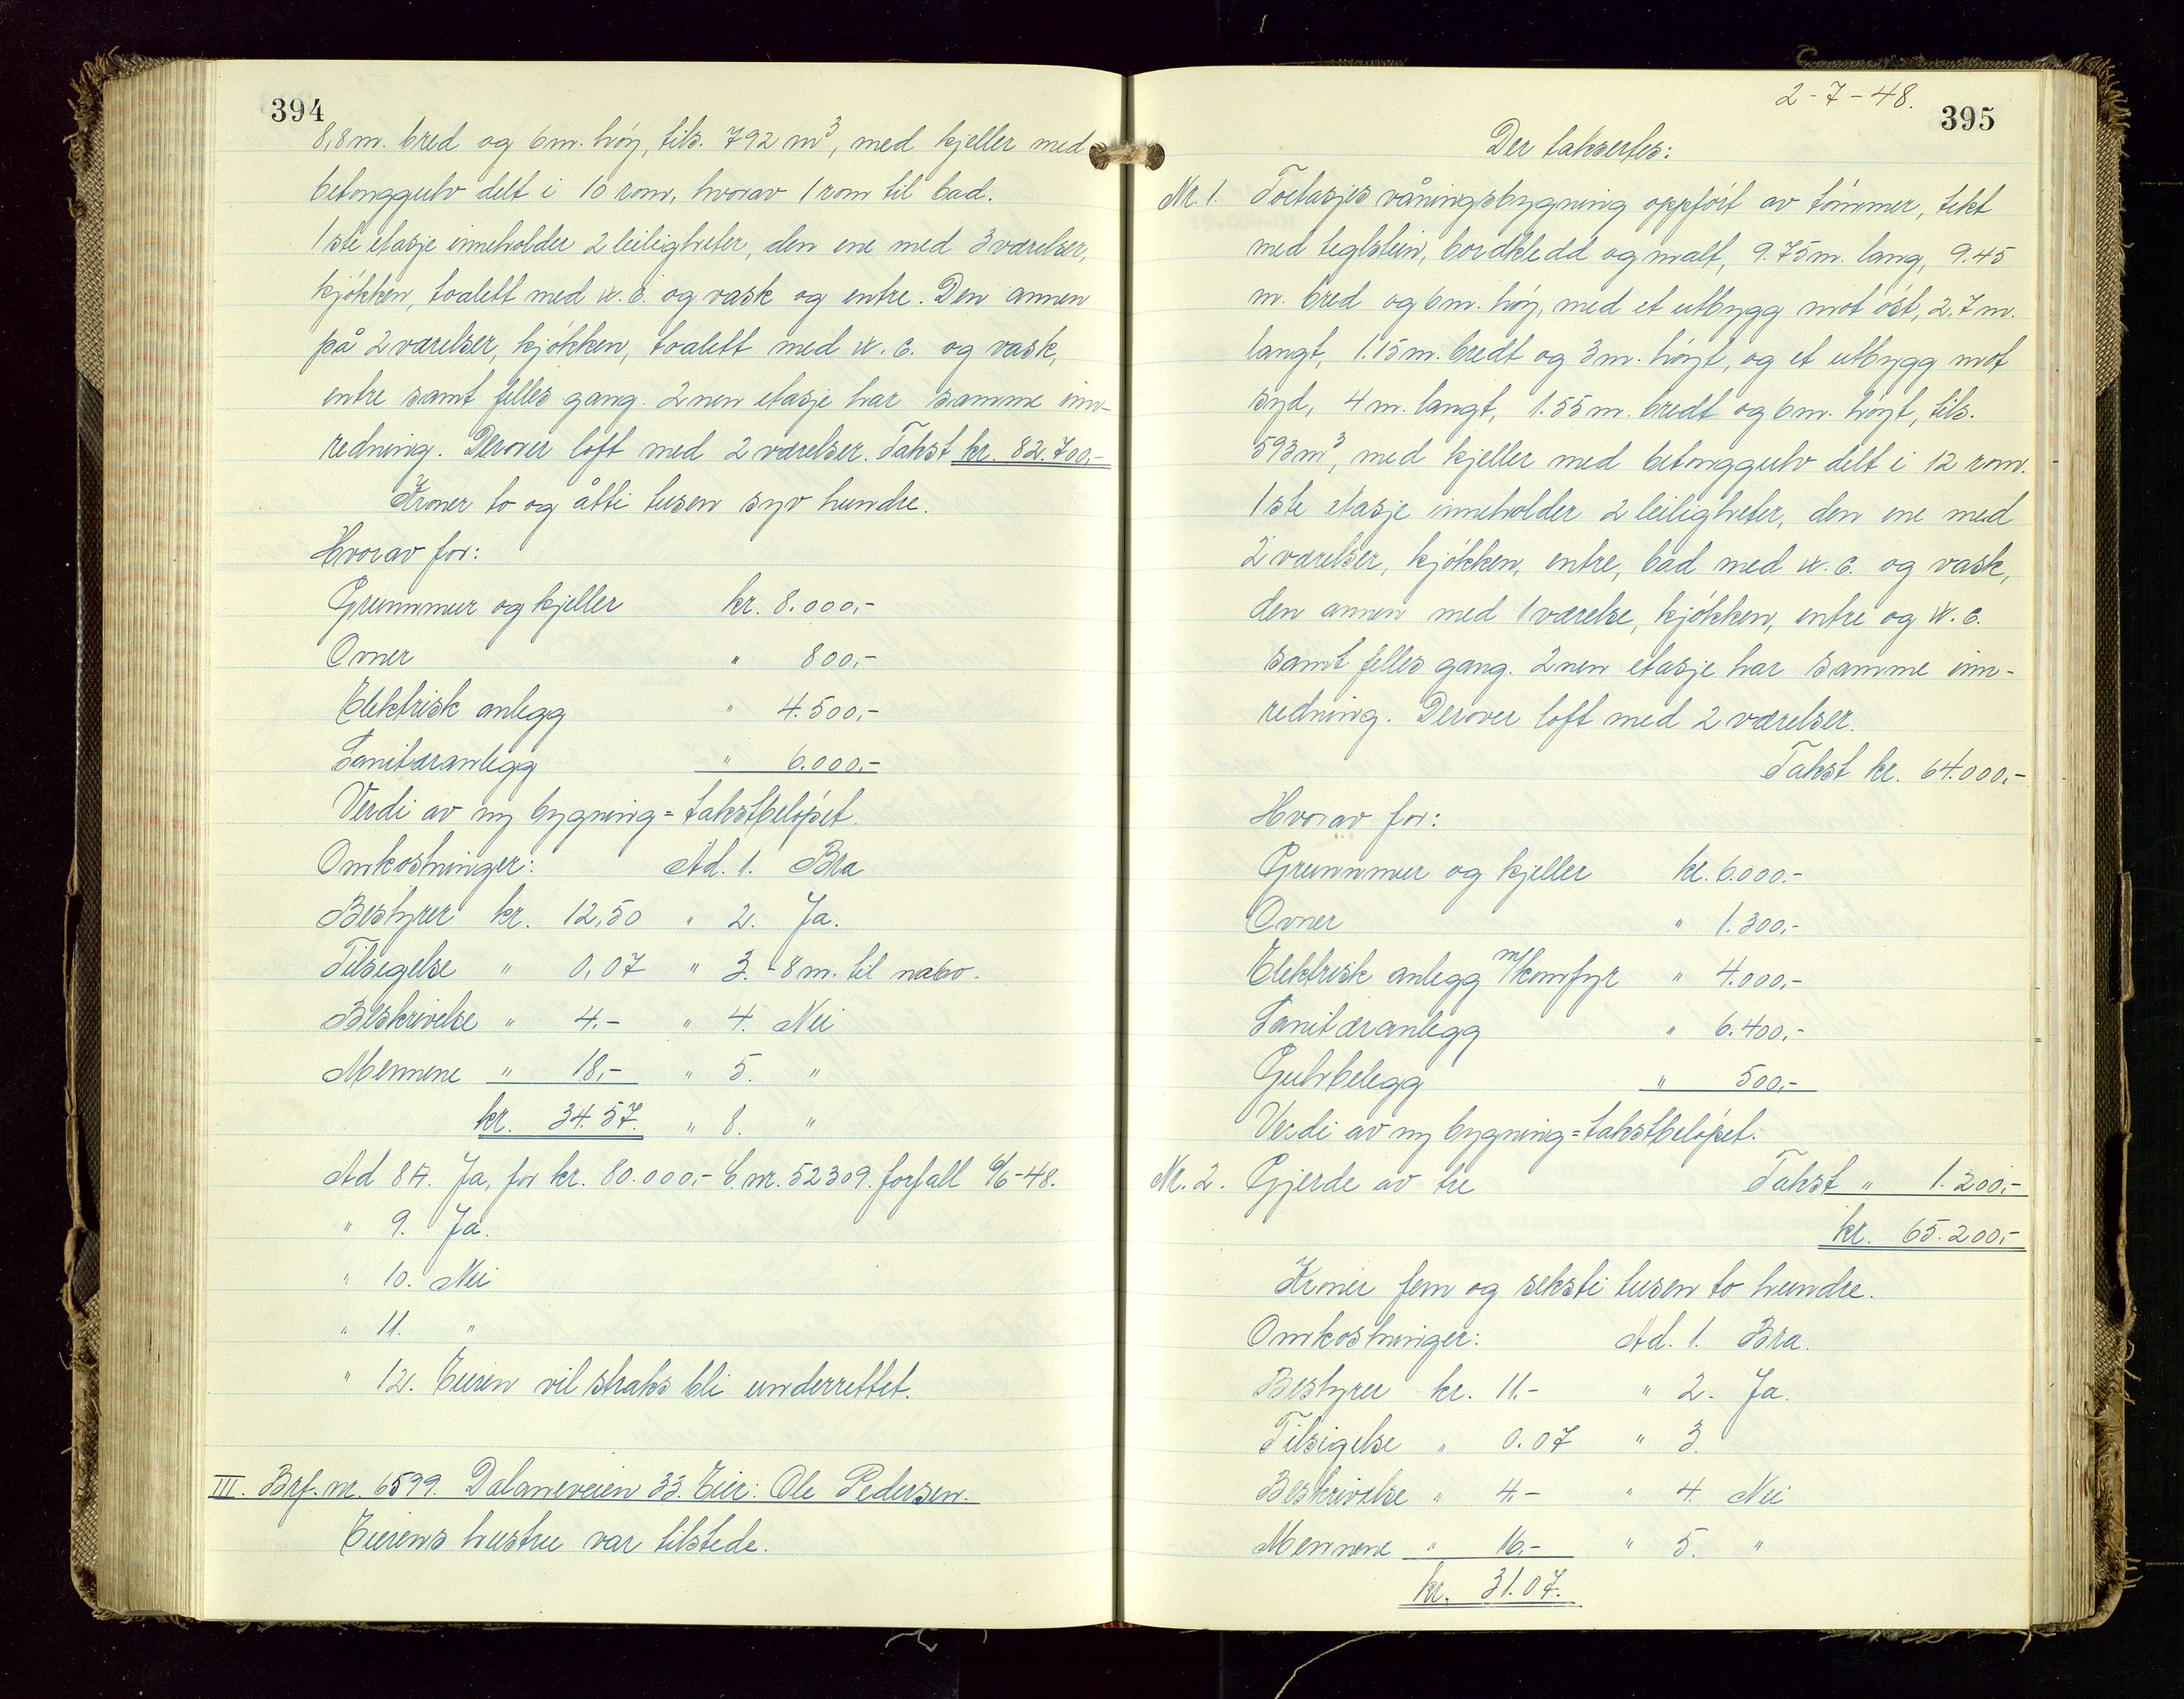 394
8,8 m. bred og 6 m. høy, tils. 792 m³, med kjeller med
betonggulv delt i 10 rom, hvorav 1 rom til bad.
1ste etasje inneholder 2 leiligheter, den ene med 3 værelser,
kjøkken, toalett med w.c. og vask og entre. Den annen
på 2 værelser, kjøkken, toalett med w.c. og vask,
entre samt felles gang. 2nen etasje har samme inn-
redning. Derover loft med 2 værelser. Takst kr. 82.700,-
Kroner to og åtti tusen syv hundre.
Hvorav for:
Grunnmur og kjeller kr. 8.000,-
Ovner " 800,-
Elektrisk anlegg " 4.500,-
Sanitæranlegg " 6.000,-
Verdi av ny bygning = takstbeløpet.
Omkostninger: Ad. 1. Bra
Bestyrer kr. 12,50 " 2. Ja.
Tilsigelse " 0,07 " 3. - 8 m. til nabo.
Beskrivelse " 4.- " 4. Nei
Mennene " 18,- " 5. "
kr. 34.57. " 8. "
Ad 8A. Ja, for kr. 80.000,- b.nr. 52309. forfall /6-48.
" 9. Ja.
" 10. Nei
" 11. "
" 12. Eieren vil straks bli underrettet.
III. Brf. nr. 6599. Dalaneveien 33. Eier: Ole Pedersen.
Eierens hustru var tilstede.
2-7-48.
395
Der taksertes:
Nr. 1. Toetasjes våningsbygning oppført av tømmer, tekt
med teglstein, bordkledd og malt, 9.75 m. lang, 9.45
m. bred og 6 m. høy, med et utbygg mot øst, 2.7 m.
langt, 1.15 m. bredt og 3 m. høyt, og et utbygg mot
syd, 4 m. langt, 1.55 m. bredt og 6 m. høyt, tils.
593 m³, med kjeller med betonggulv delt i 12 rom.
1ste etasje inneholder 2 leiligheter, den ene med
2 værelser, kjøkken, entre, bad med w.c. og vask,
den annen med 1 værelse, kjøkken, entre og w.c.
samt felles gang. 2nen etasje har samme inn-
redning. Derover loft med 2 værelser.
Takst kr. 64.000,-
Hvorav for:
Grunnmur og kjeller kr. 6.000.-
Ovner " 1.300,-
Elektrisk anlegg m/komfyr " 4.000,-
Sanitæranlegg " 6.400,-
Gulvbelegg " 500,-
Verdi av ny bygning = takstbeløpet.
Nr. 2. Gjerde av tre Takst " 1.200,-
kr. 65.200,-
Kroner fem og seksti tusen to hundre.
Omkostninger: Ad. 1. Bra.
Bestyrer kr. 11.- " 2. Ja.
Tilsigelse " 0.07 " 3.
Beskrivelse " 4,- " 4. Nei
Mennene " 16,- " 5. "
kr. 31.07.